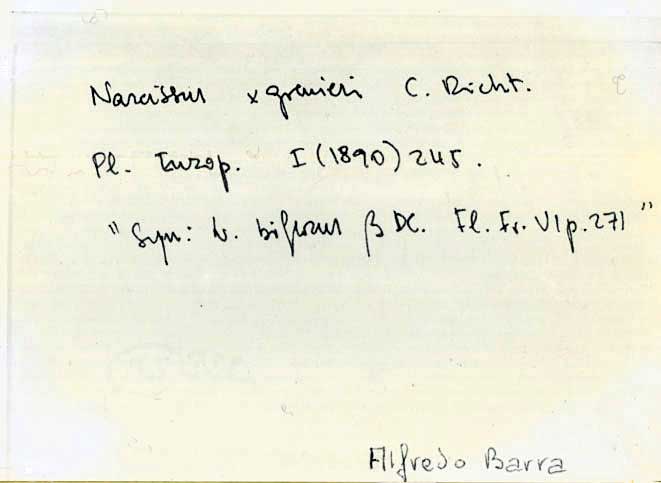 Narcissus x grenieri C. Richt.
Pl. Europ. I (1890) 245.
"Syn: N. biflorus β DC. Fl. Fr. VI p. 271"
Alfredo Barra